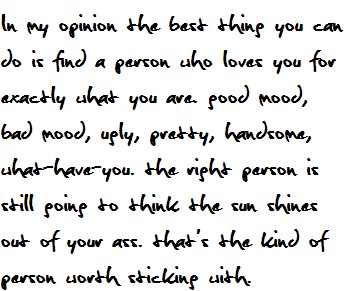 In my opinion the best thing you can
do is find a person who loves you for
exactly what you are. good mood,
bad mood, ugly, pretty, handsome,
what-have-you. the right person is
still going to think the sun shines
out of your ass. that's the kind of
person worth sticking with.